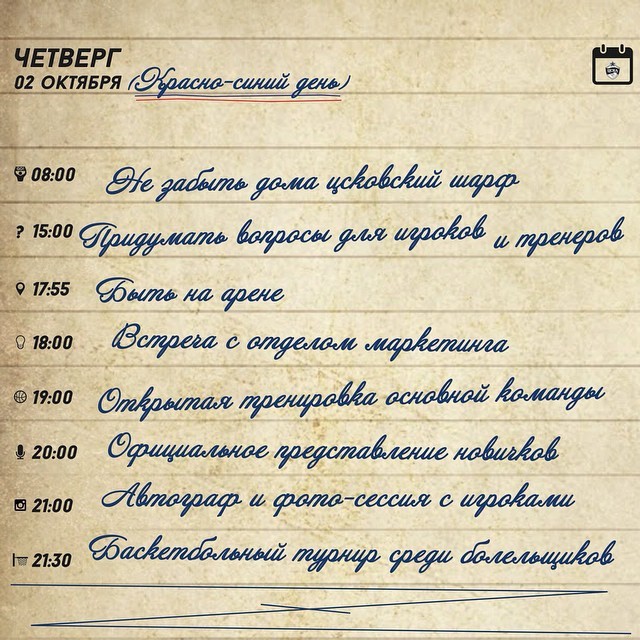 ЧЕТВЕРГ
02 ОКТЯБРЯ (Красно-синий день)
08:00 Не забыть дома цсковский шарф
? 15:00 Придумать вопросы для игроков и тренеров
17:55 Быть на арене
18:00 Встреча с отделом маркетинга
19:00 Открытая тренировка основной команды
20:00 Официальное представление новичков
21:00 Автограф и фото-сессия с игроками
21:30 Баскетбольный турнир среди болельщиков